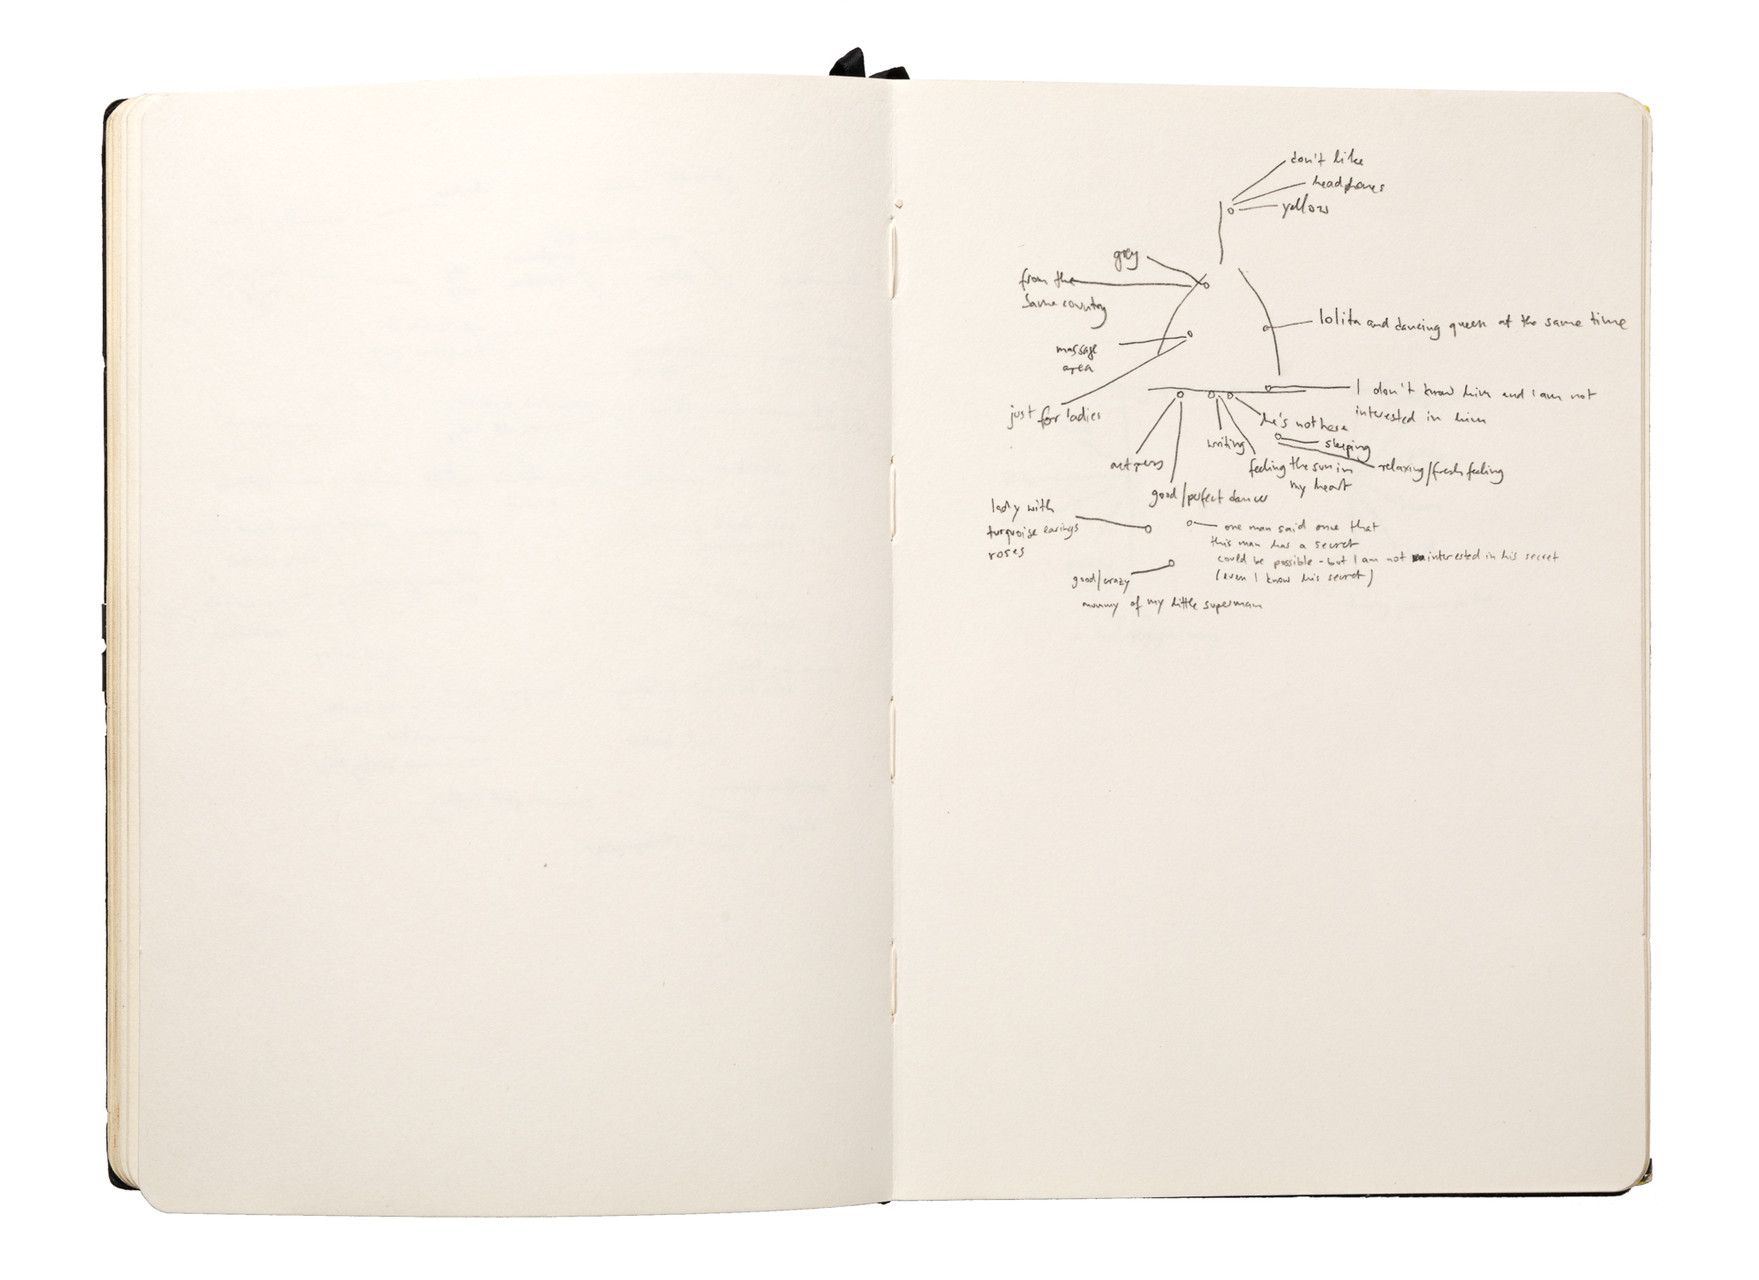 don't like
headphones
yellow
grey
from the
same country
lolita and dancing queen at the same time
massage
area
I don't know him and I am not
interested in him
just for ladies
he's not here
writing
sleeping
actress
feeling the sun in
my heart
relaxing/fresh feeling
good/perfect dancer
lady with
turquoise earings
roses
one man said once that
this man has a secret
could be possible - but I am not interested in his secret
(even I know his secret)
good/crazy
mummy of my little superman